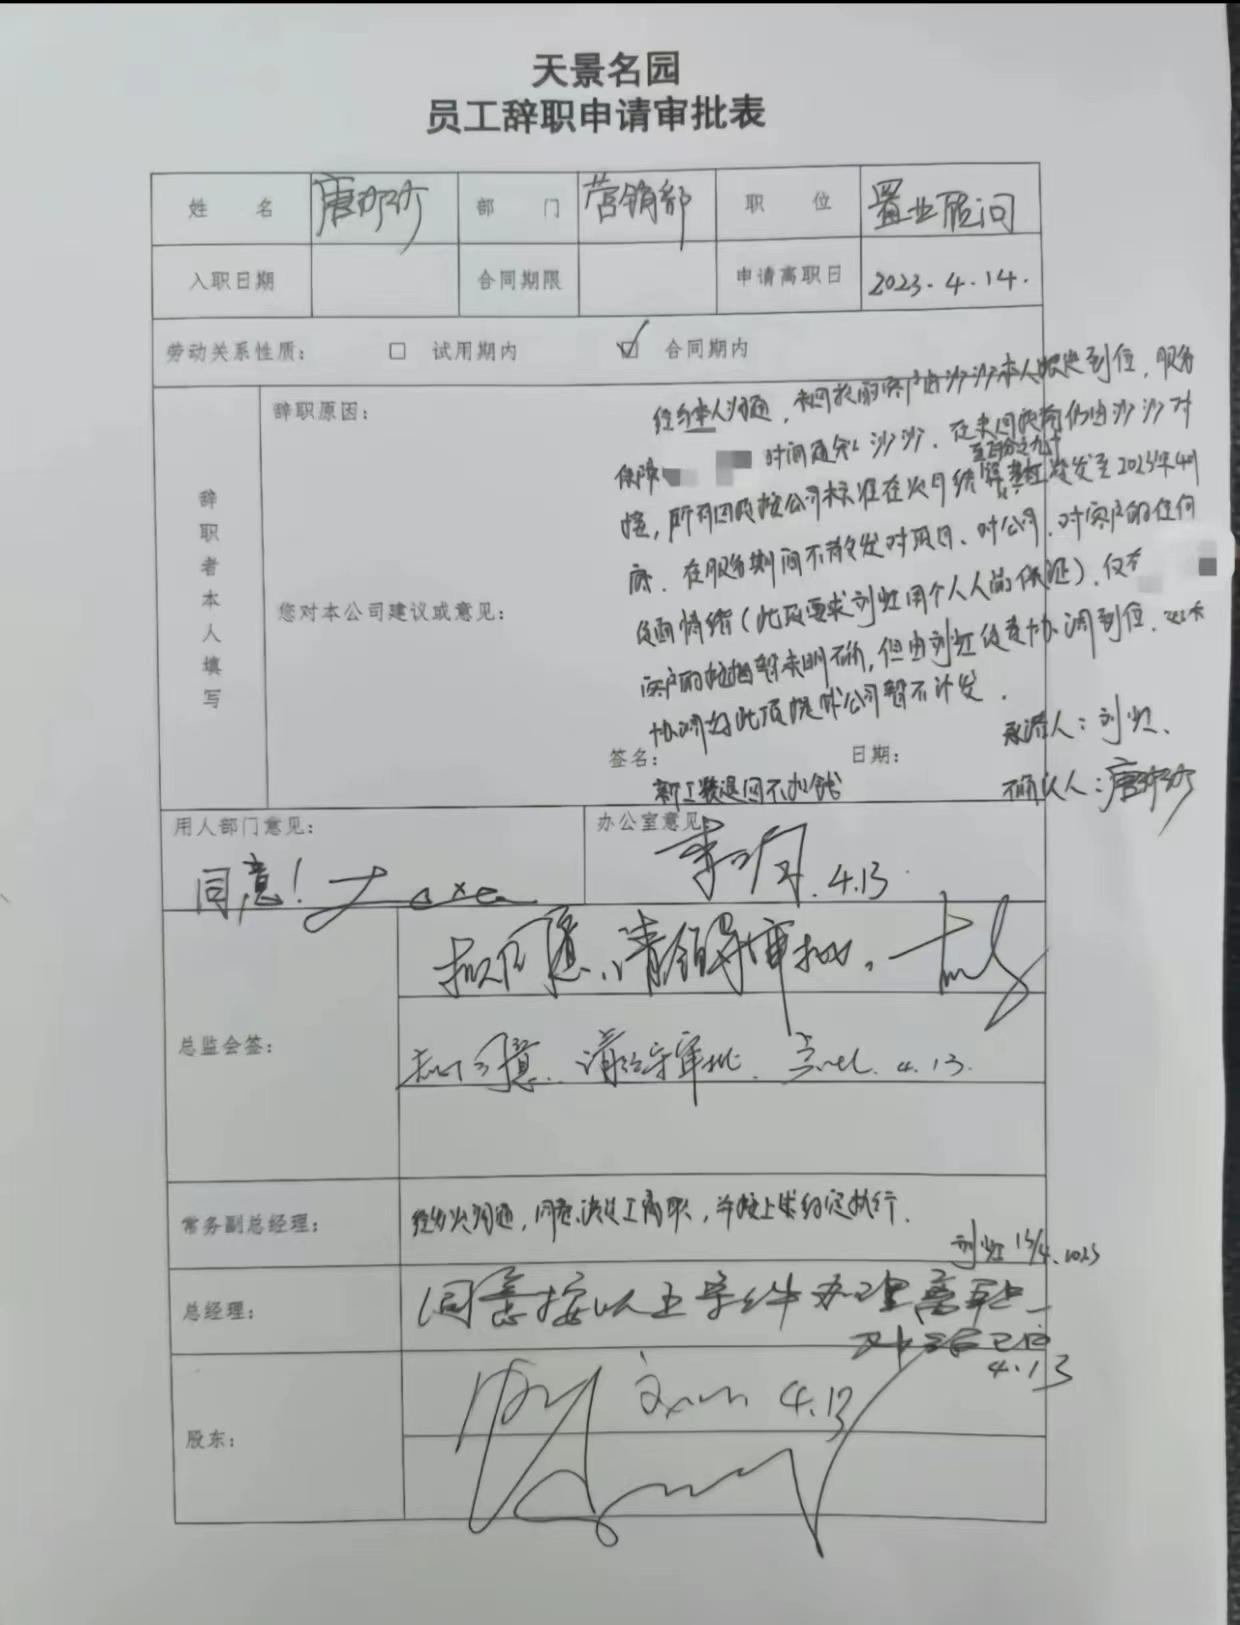 天景名园
员工辞职申请审批表
姓 名 唐沙沙 部 门 营销部 职 位 置业顾问
入职日期 合同期限 申请离职日 2023.4.14.
劳动关系性质： □ 试用期内 ☑ 合同期内
辞职者本人填写
辞职原因：
经与本人沟通，未回款的客户由沙沙本人跟进到位，服务
保障 时间 沙沙，在未回款前仍由沙沙对
接，所有回款按公司标准在次月结算 至百分之九十 发至2023年4月
底．在服务期间不散发对项目、对公司、对客户的任何
您对本公司建议或意见：
负面情绪（此及要求刘虹用个人人品保证）．仅有
客户的 暂未明确，但由刘虹负责协调到位．
协调好此项提成公司暂不计发．
签名： 日期：
承诺人：刘虹．
新工装退回不扣钱
确认人：唐沙沙
用人部门意见：
同意！
办公室意见：
4.13
总监会签：
拟同意，请领导审批。
拟同意．请 审批． 4.13.
常务副总经理：
经多次沟通，同意该员工离职，并按上述约定执行．
刘虹 13/4.2023
总经理：
同意按以上条件办理离职
4.13
股东：
4.13